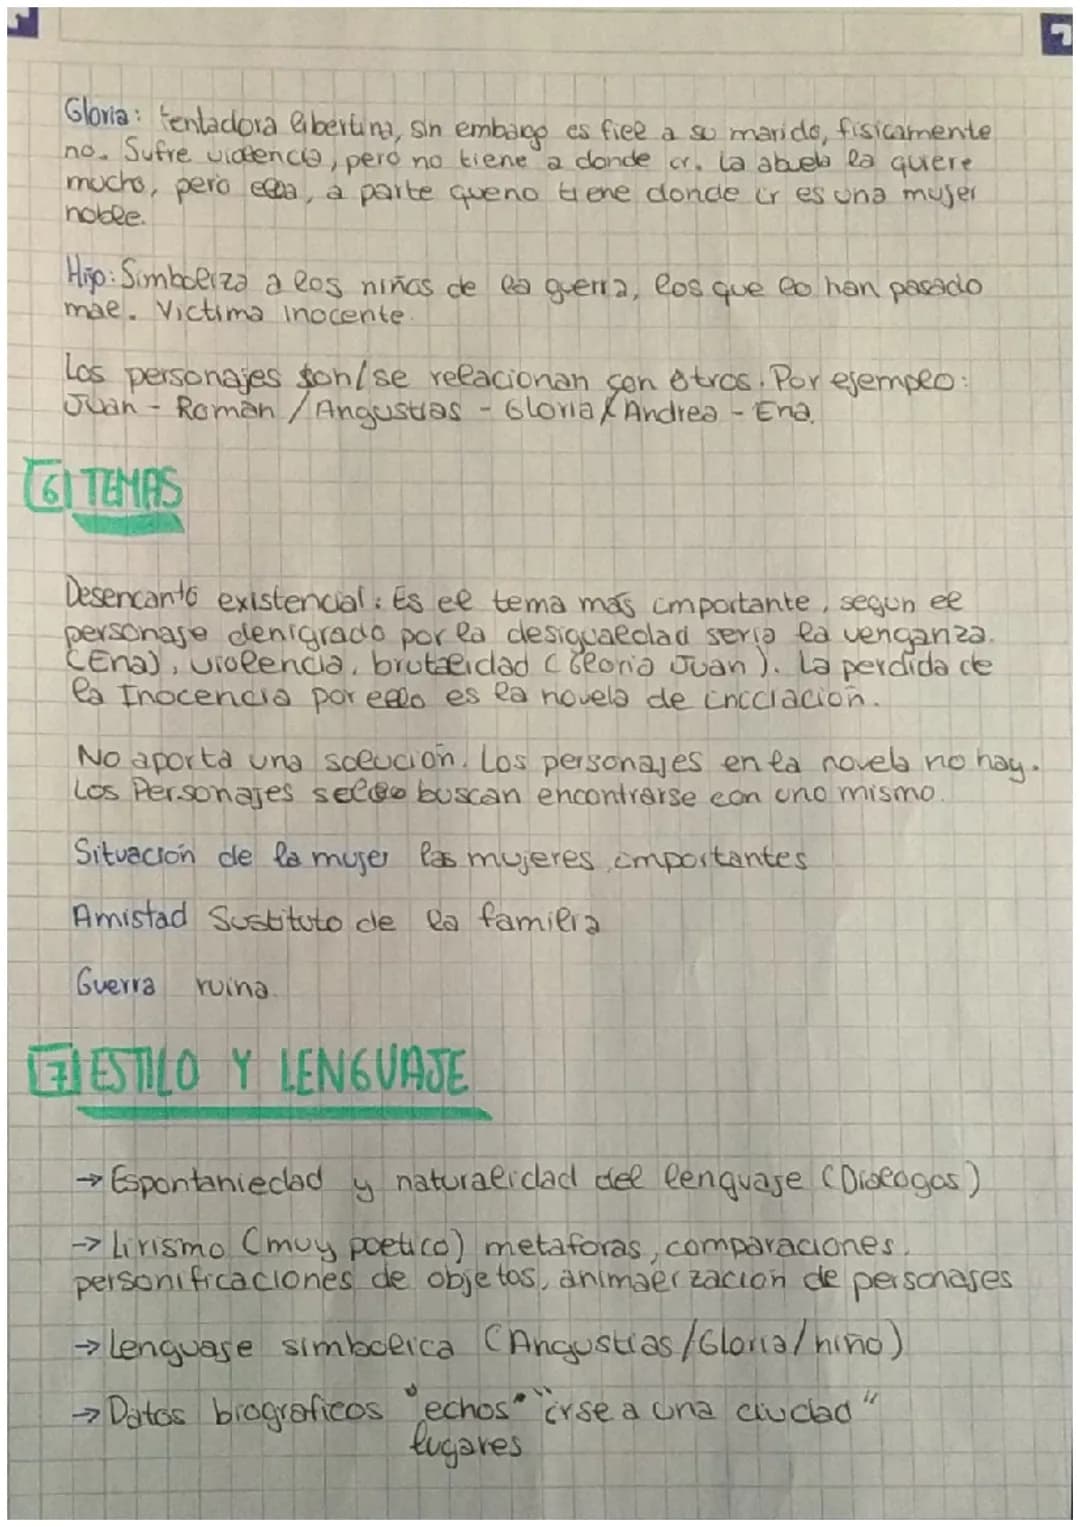 Gloria: tentadora libertina, sin embargo es fiel a su marido, fisicamente
no. Sufre violencia, pero no tiene a donde ir. La abuela la quiere
mucho, pero ella, a parte queno tiene donde ir es una mujer
noble.
Hijo: Simboliza a los niños de la guerra, los que lo han pasado
mal. Victima inocente.
Los personajes son/se relacionan con otros. Por ejemplo:
Juan - Román / Angustias - Gloria / Andrea - Ena.
6 TEMAS
Desencanto existencial: Es el tema más importante, segun el
personaje denigrado por la desigualdad seria la venganza.
(Ena), violencia, brutalidad (Gloria Juan). La perdida de
la Inocencia por ello es la novela de inciación.
No aporta una solución. Los personajes en la novela no hay.
Los Personajes solo buscan encontrarse con uno mismo.
Situación de la mujer las mujeres importantes
Amistad Sustituto de la familia
Guerra ruina.
7 ESTILO Y LENGUAJE
→ Espontaniedad y naturalidad del lenguaje (Dialogos)
→ Lirismo (muy poetico) metaforas, comparaciones.
personificaciones de objetos, animalización de personajes
→ Lenguaje simbolica (Angustias/Gloria/niño)
→ Datos biograficos "echos" "irse a una ciudad"
lugares